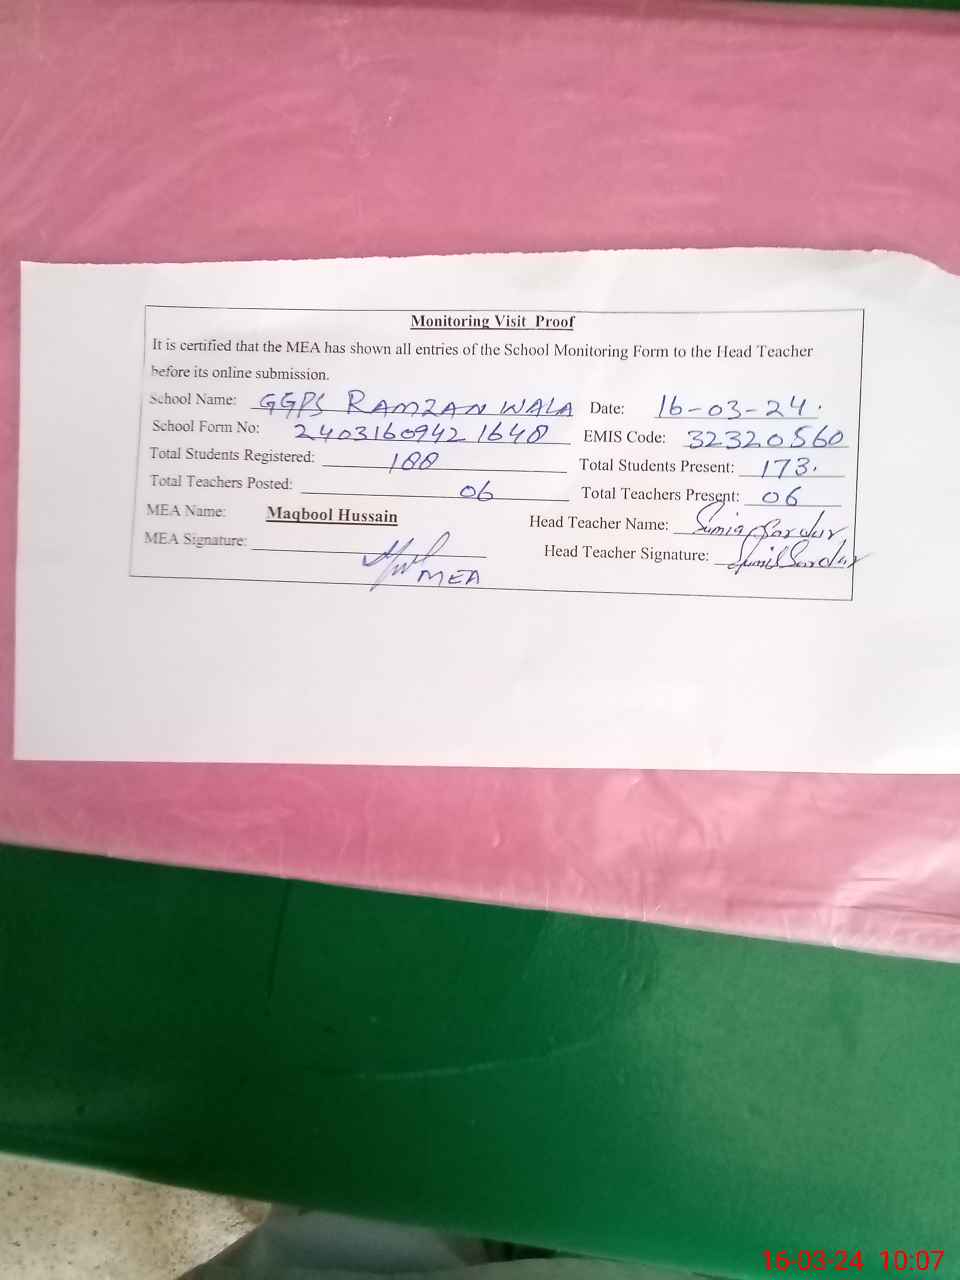 Monitoring Visit Proof
It is certified that the MEA has shown all entries of the School Monitoring Form to the Head Teacher
before its online submission.
School Name: GGPS RAMZAN WALA Date: 16-03-24.
School Form No: 24031609421648 EMIS Code: 32320560
Total Students Registered: 188 Total Students Present: 173.
Total Teachers Posted: 06 Total Teachers Present: 06
MEA Name: Maqbool Hussain Head Teacher Name: Sumia Sardar
MEA Signature: MEA Head Teacher Signature: Sardar
16-03-24 10:07